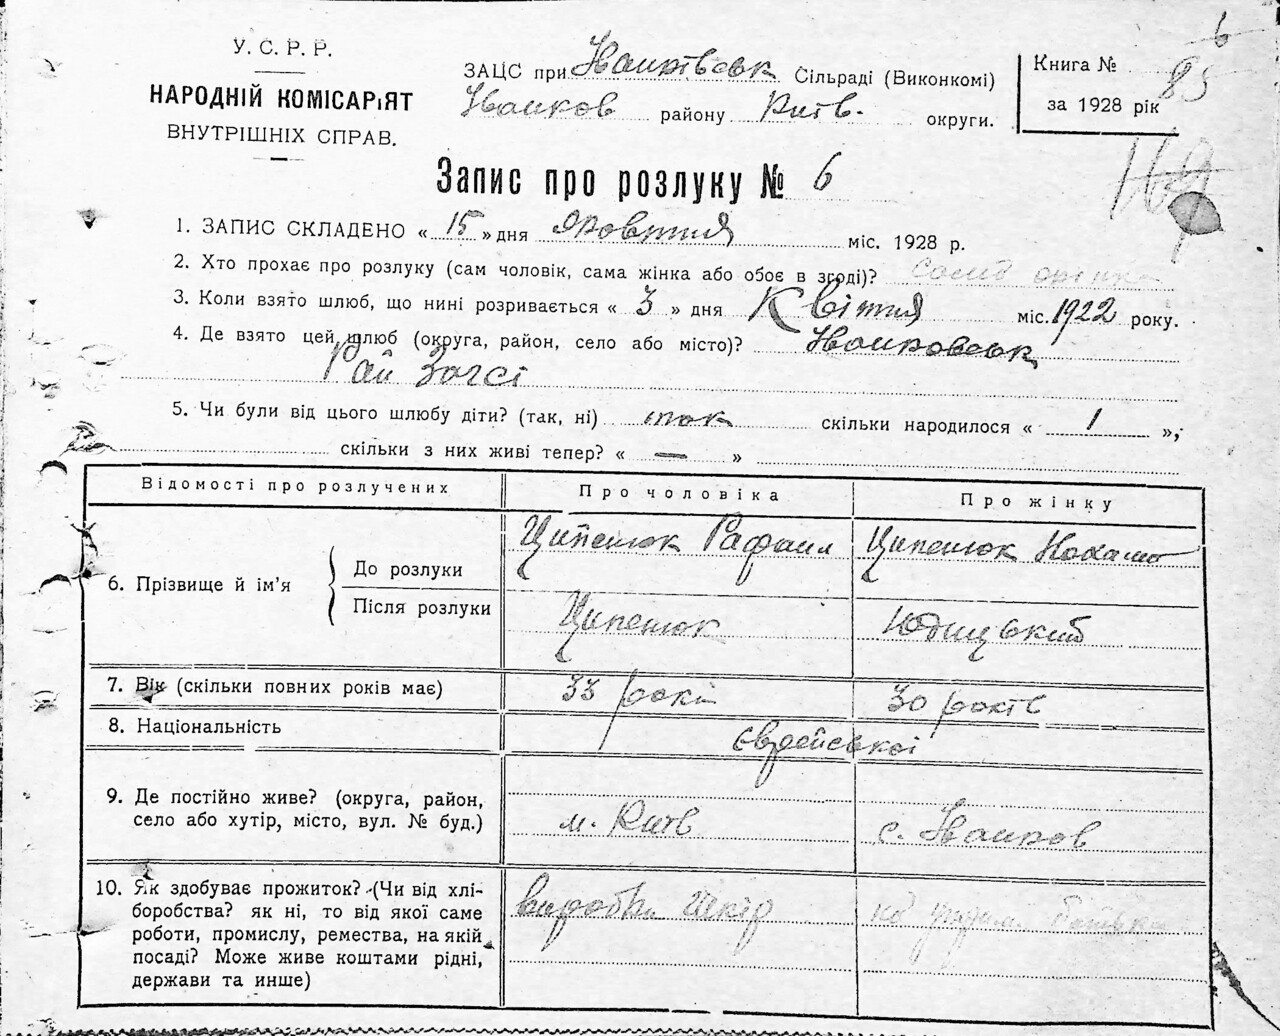 6
У. С. Р. Р.
НАРОДНІЙ КОМІСАРІЯТ
ВНУТРІШНІХ СПРАВ.
ЗАЦС при Іванківськ Сільраді (Виконкомі)
Іванков району Київ. округи.
Книга № 85
за 1928 рік
169
Запис про розлуку № 6
1. ЗАПИС СКЛАДЕНО « 15 » дня Жовтня міс. 1928 р.
2. Хто прохає про розлуку (сам чоловік, сама жінка або обоє в згоді)?
3. Коли взято шлюб, що нині розривається « 3 » дня Квітня міс. 1922 року.
4. Де взято цей шлюб (округа, район, село або місто)? Іванковськ
Рай Загсі
5. Чи були від цього шлюбу діти? (так, ні) так скільки народилося « 1 »,
скільки з них живі тепер? « — »
Відомості про розлучених Про чоловіка Про жінку
6. Прізвище й ім’я До розлуки Ципенюк Рафаил Ципенюк
Після розлуки Ципенюк Юдицький
7. Вік (скільки повних років має) 33 рокі 30 років
8. Національність Єврейської
9. Де постійно живе? (округа, район,
село або хутір, місто, вул. № буд.) м. Київ с. Іванков
10. Як здобуває прожиток? (Чи від хлі-
боробства? як ні, то від якої саме
роботи, промислу, ремества, на якій
посаді? Може живе коштами рідні,
держави та инше) виробка шкір